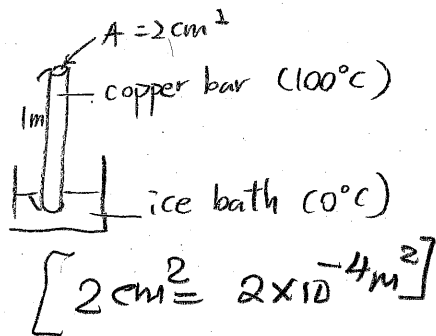 A = 2 cm²
copper bar (100°C)
1m
ice bath (0°C)
[2 cm² = 2×10⁻⁴m²]